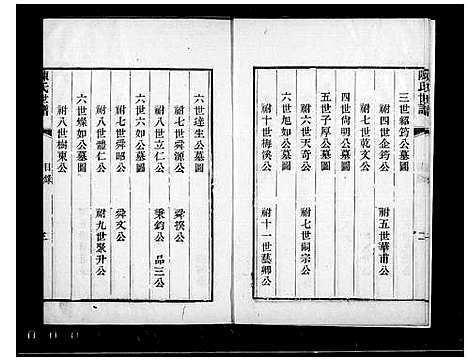 陳氏世譜
三世紹筠公墓圖
祔四世企筠公　祔五世華甫公
祔七世乾文公
四世尙明公墓圖
五世子厚公墓圖
祔六世天奇公　祔七世嗣宗公
六世旭如公墓圖
祔十世梅溪公　祔十一世藝卿公
六世達生公墓圖
祔七世舜源公　舜溪公
祔八世立仁公　秉鈞公　品三公
六世六如公墓圖
祔七世舜昭公　舜文公
祔八世體仁公　祔九世聚升公
六世蝶如公墓圖
祔八世樹東公
陳氏世譜
目錄
三